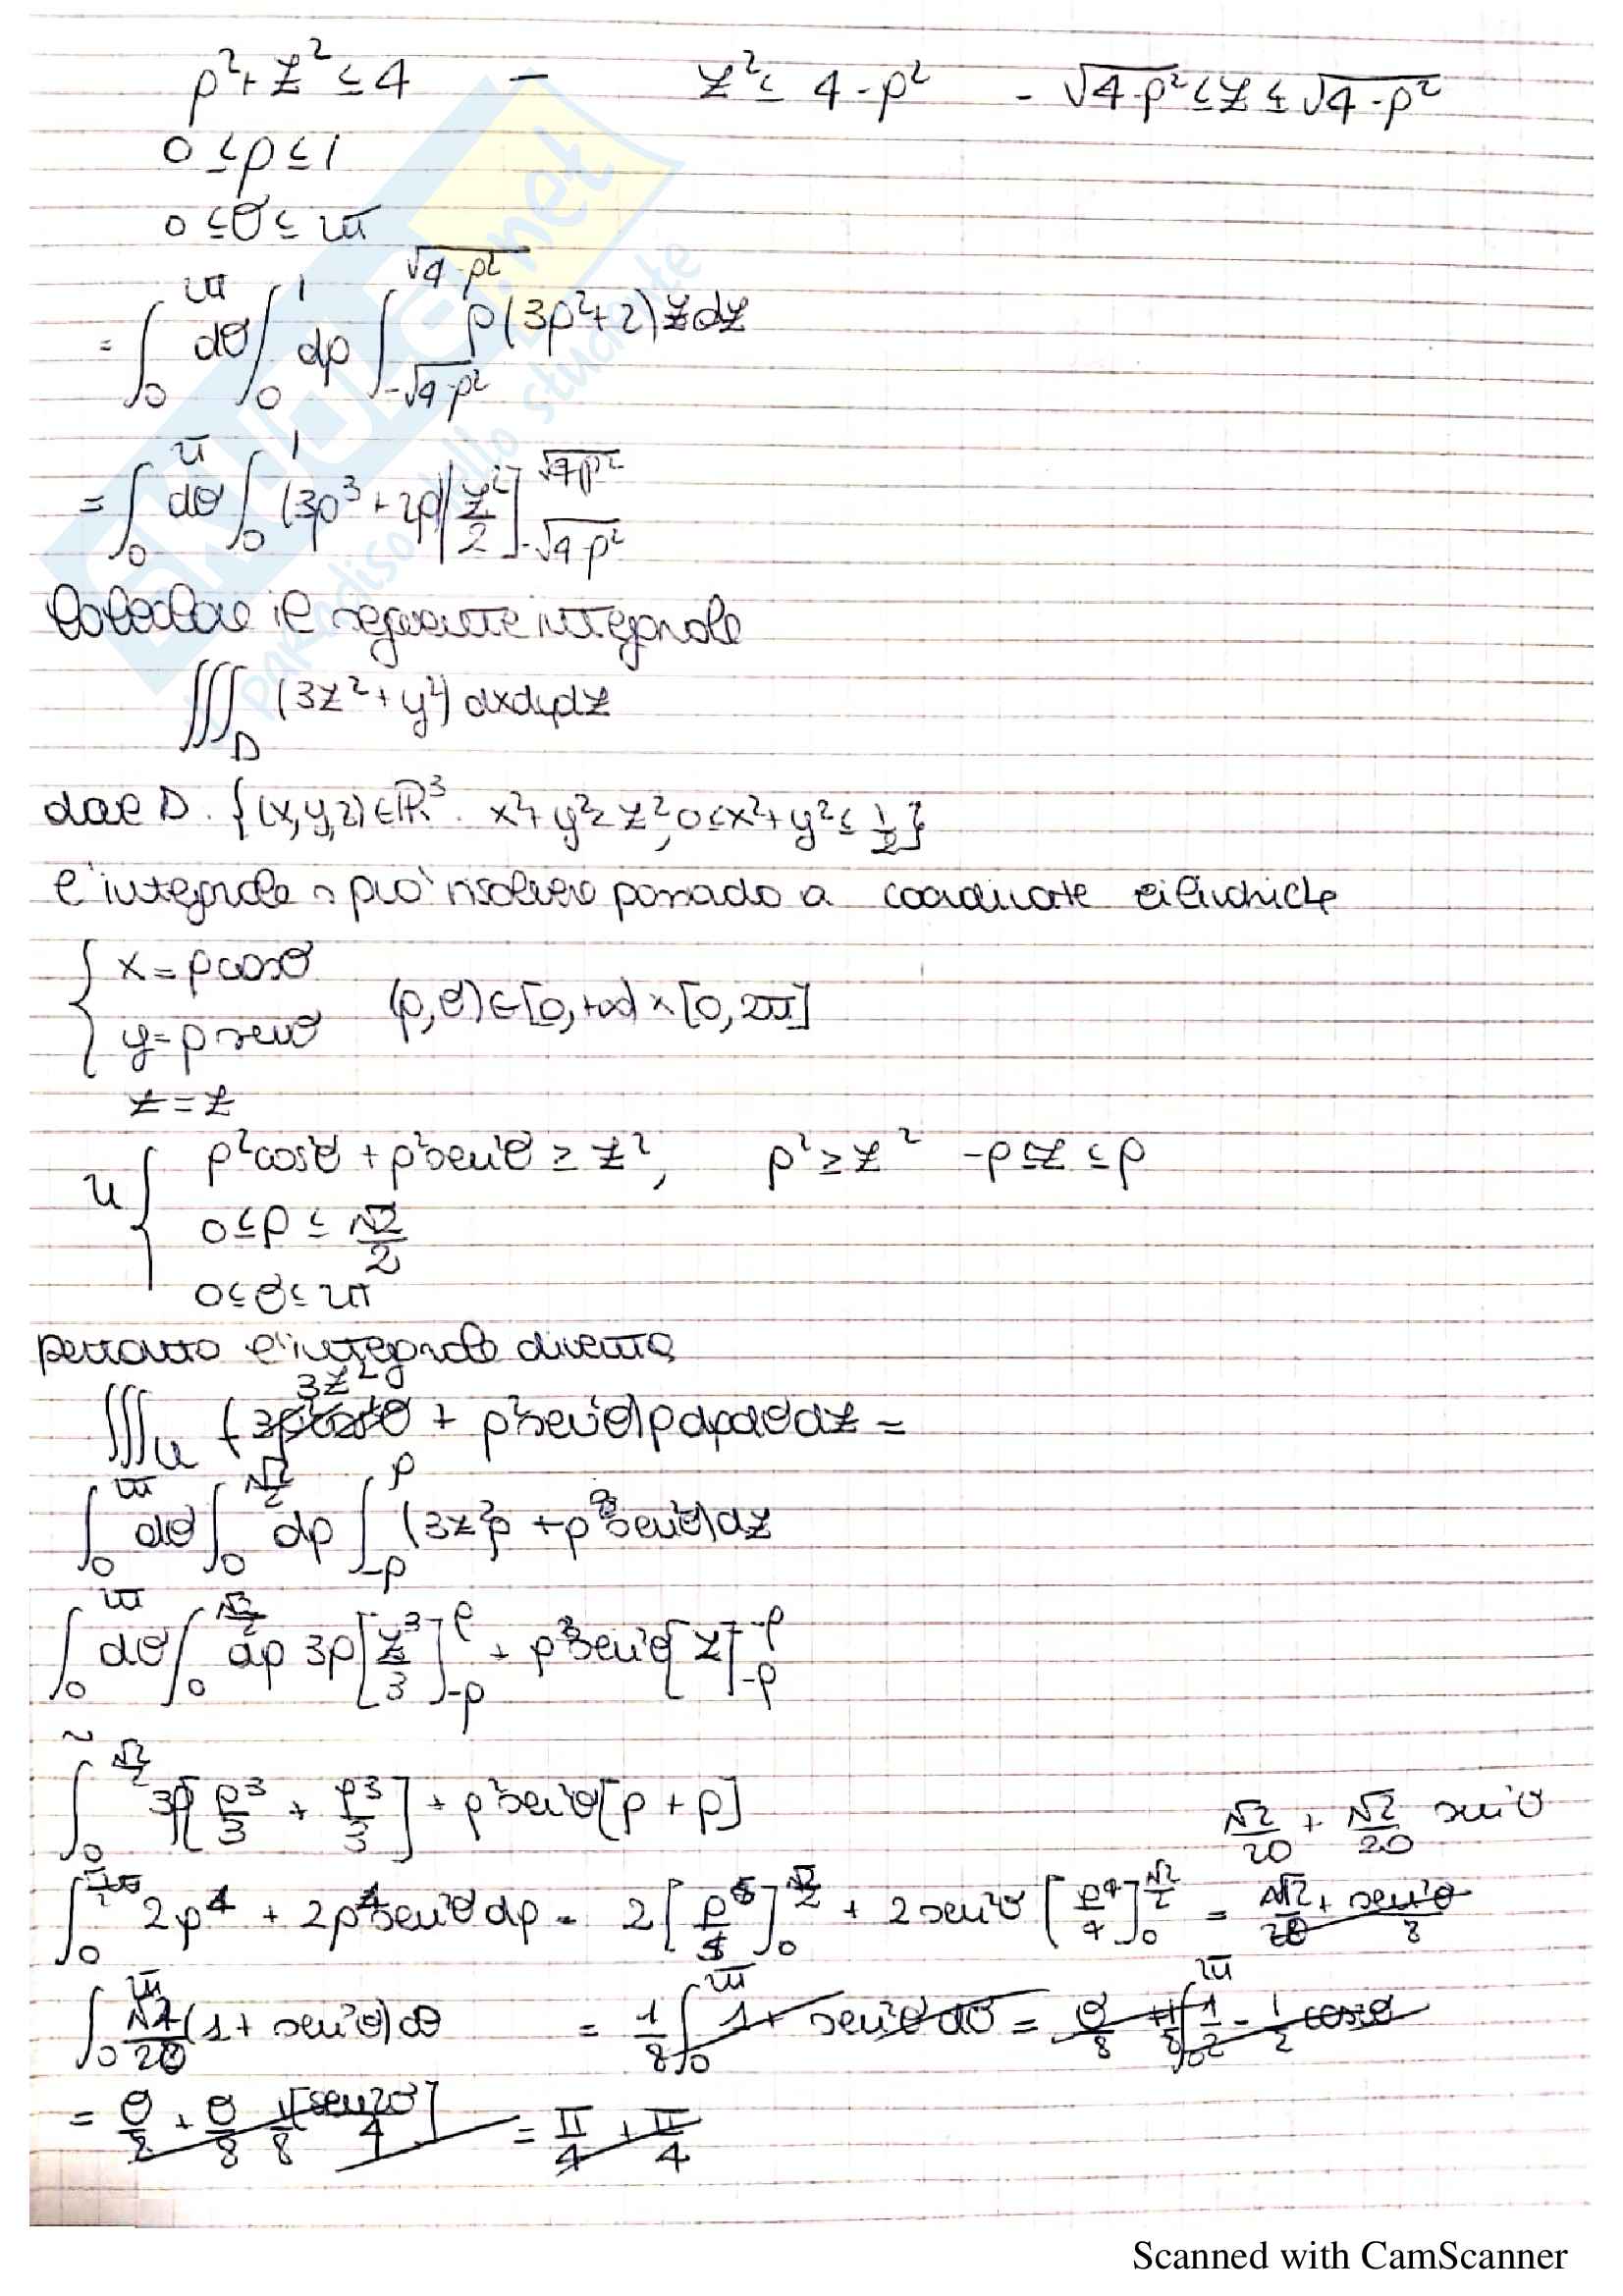 ρ²+z² ≤ 4 – z² ≤ 4-ρ² -√4-ρ² ≤ z ≤ √4-ρ²
0 ≤ ρ ≤ 1
0 ≤ θ ≤ 2π
= ∫₀^2π dθ ∫₀^1 dρ ∫_-√4-ρ²^√4-ρ² ρ(3ρ²+2)z dz
= ∫₀^π dθ ∫₀^1 (3ρ³+2ρ)[z²/2]_-√4-ρ²^√4-ρ²
Calcolare il seguente integrale
∭_D (3z²+y²) dxdydz
dove D. {(x,y,z)∈ℝ³. x²+y²≥z², 0≤x²+y²≤1/2}
l'integrale si può risolvere passado a coordinate cilindriche
{ x=ρcosθ
y=ρsenθ (ρ,θ)∈[0,+∞]×[0,2π]
z=z
U { ρ²cos²θ+ρ²sen²θ ≥ z², ρ²≥z² -ρ≤z≤ρ
0≤ρ≤√2/2
0≤θ≤2π
pertanto l'integrale diventa
∭_U (3z² + ρ²sen²θ)ρdρdθdz =
∫₀^2π dθ ∫₀^√2/2 dρ ∫_-ρ^ρ (3z²ρ+ρ³sen²θ)dz
∫₀^2π dθ ∫₀^√2/2 dρ 3ρ[z³/3]_-ρ^ρ + ρ³sen²θ[z]_-ρ^-ρ
∫₀^√2/2 3ρ[ρ³/3 + ρ³/3] + ρ³sen²θ[ρ+ρ]
√2/20 + √2/20 sen²θ
∫₀ 2ρ⁴ + 2ρ⁴sen²θ dρ = 2[ρ⁵/5]₀^√2/2 + 2sen²θ[ρ⁴/4]₀^√2/2 =
∫₀^2π √2/20 (1+sen²θ)dθ = 1/8 ∫₀^2π 1+sen²θdθ = θ/8 + 1/8 ∫₀^2π 1/2 - 1/2 cos2θ
= θ/8 + θ/8 1/8[sen2θ/4] = π/4 + π/4
SKUOLA.net
paradiso dello studente
Scanned with CamScanner